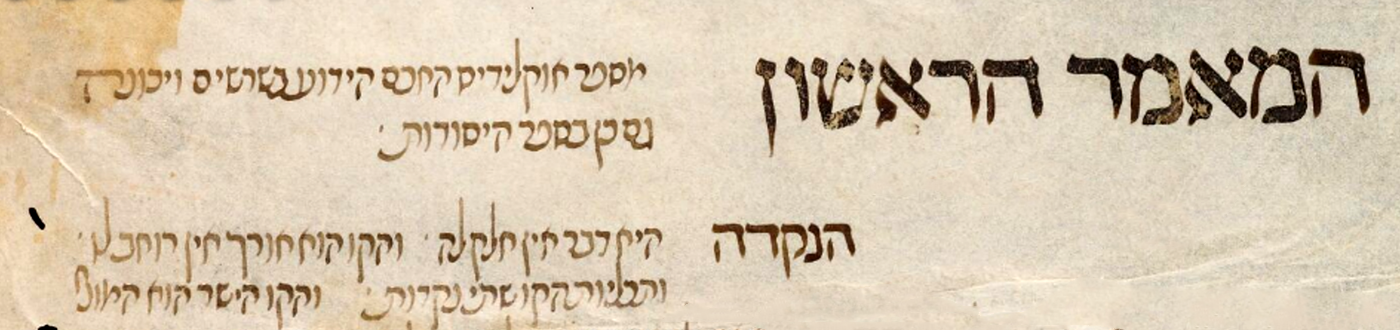 המאמר הראשון
מספר אוקלידיס החכם הידוע בשרשים ויכונה
גם כן בספר היסודות
הנקדה היא דבר אין חלק לה והקו הוא אורך אין רוחב לו
ותכליות הקו שתי נקדות והקו הישר הוא המונ